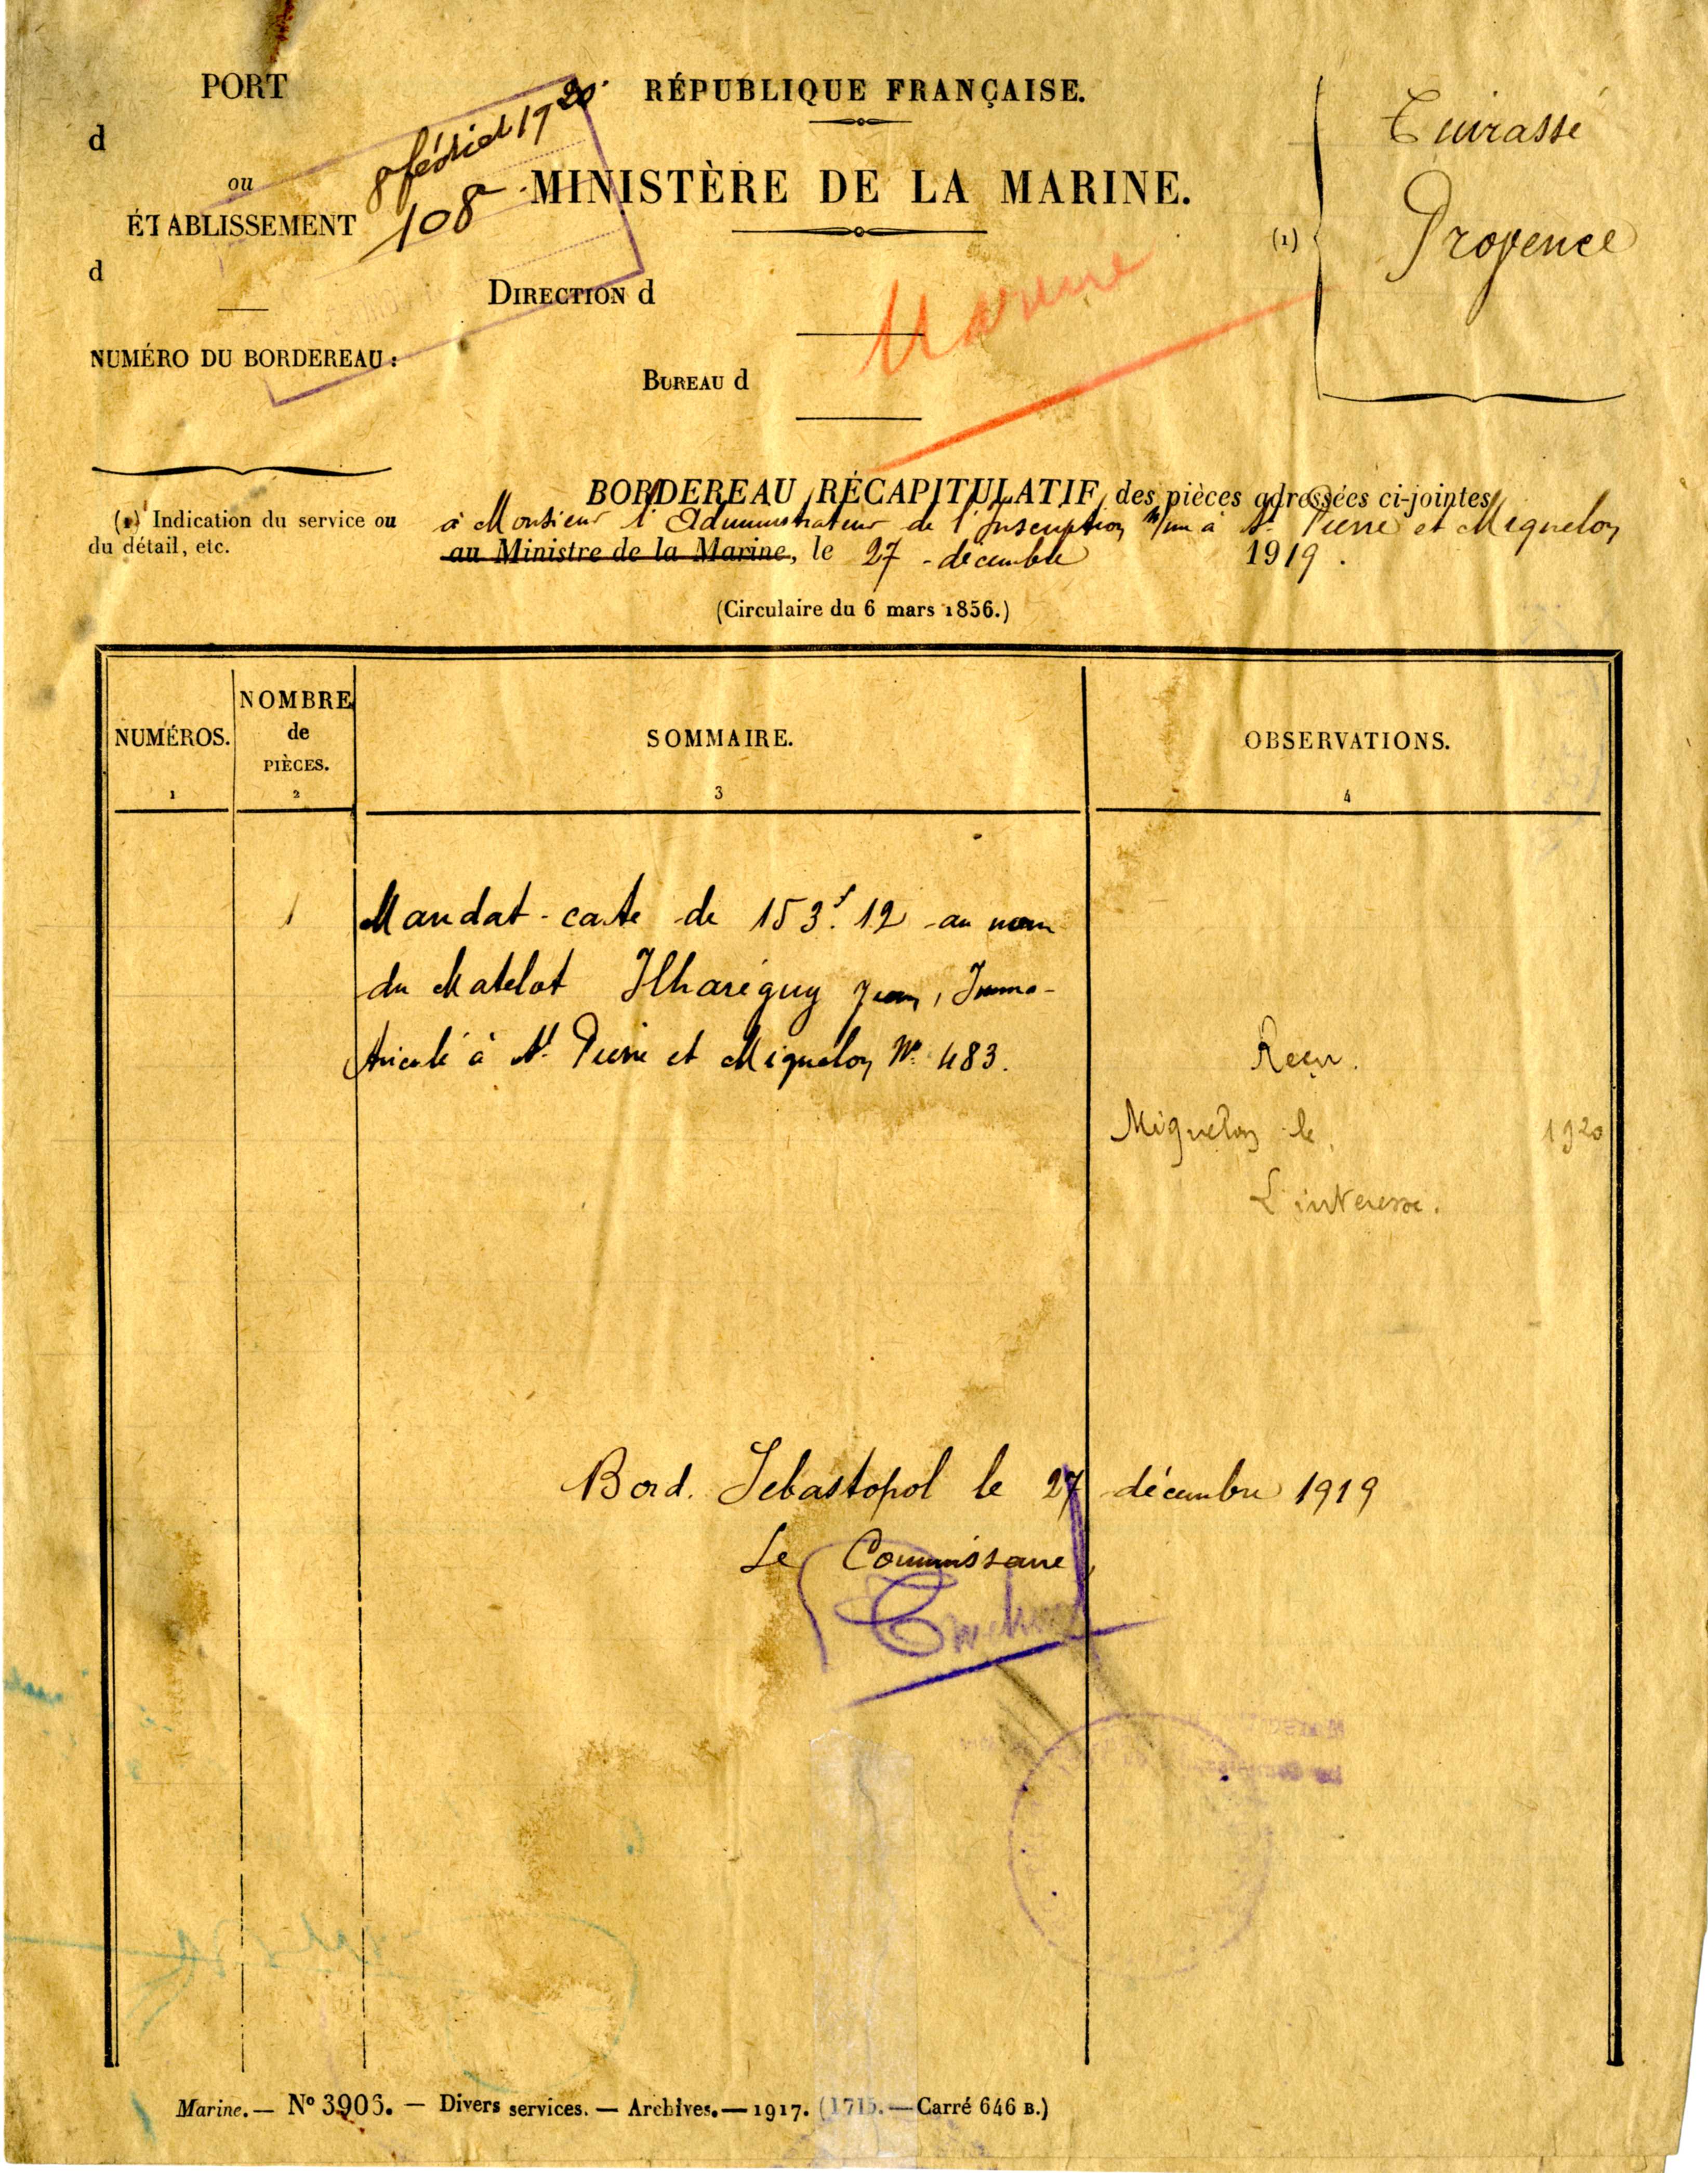 PORT
d
ou
ÉTABLISSEMENT
d
NUMÉRO DU BORDEREAU :
8 février 1920
108
RÉPUBLIQUE FRANÇAISE.
MINISTÈRE DE LA MARINE.
DIRECTION d
BUREAU d
Marine
(1)
Cuirassé
Provence
(1) Indication du service ou
du détail, etc.
BORDEREAU RÉCAPITULATIF des pièces adressées ci-jointes
à Monsieur l'Administrateur de l'Inscription m/me à St Pierre et Miquelon
au Ministre de la Marine, le 27 décembre 1919.
(Circulaire du 6 mars 1856.)
NUMÉROS.
1
NOMBRE
de
PIÈCES.
2
SOMMAIRE.
3
OBSERVATIONS.
4
1 Mandat-carte de 153f.12 au nom
du Matelot Ilharéguy Jean, Imma-
triculé à St Pierre et Miquelon No 483.
Reçu.
Miquelon le 1920
L'intéressé.
Bord. Sebastopol le 27 décembre 1919
Le Commissaire,
Marine. — No 3906. — Divers services. — Archives. — 1917. (1715. — Carré 646 B.)